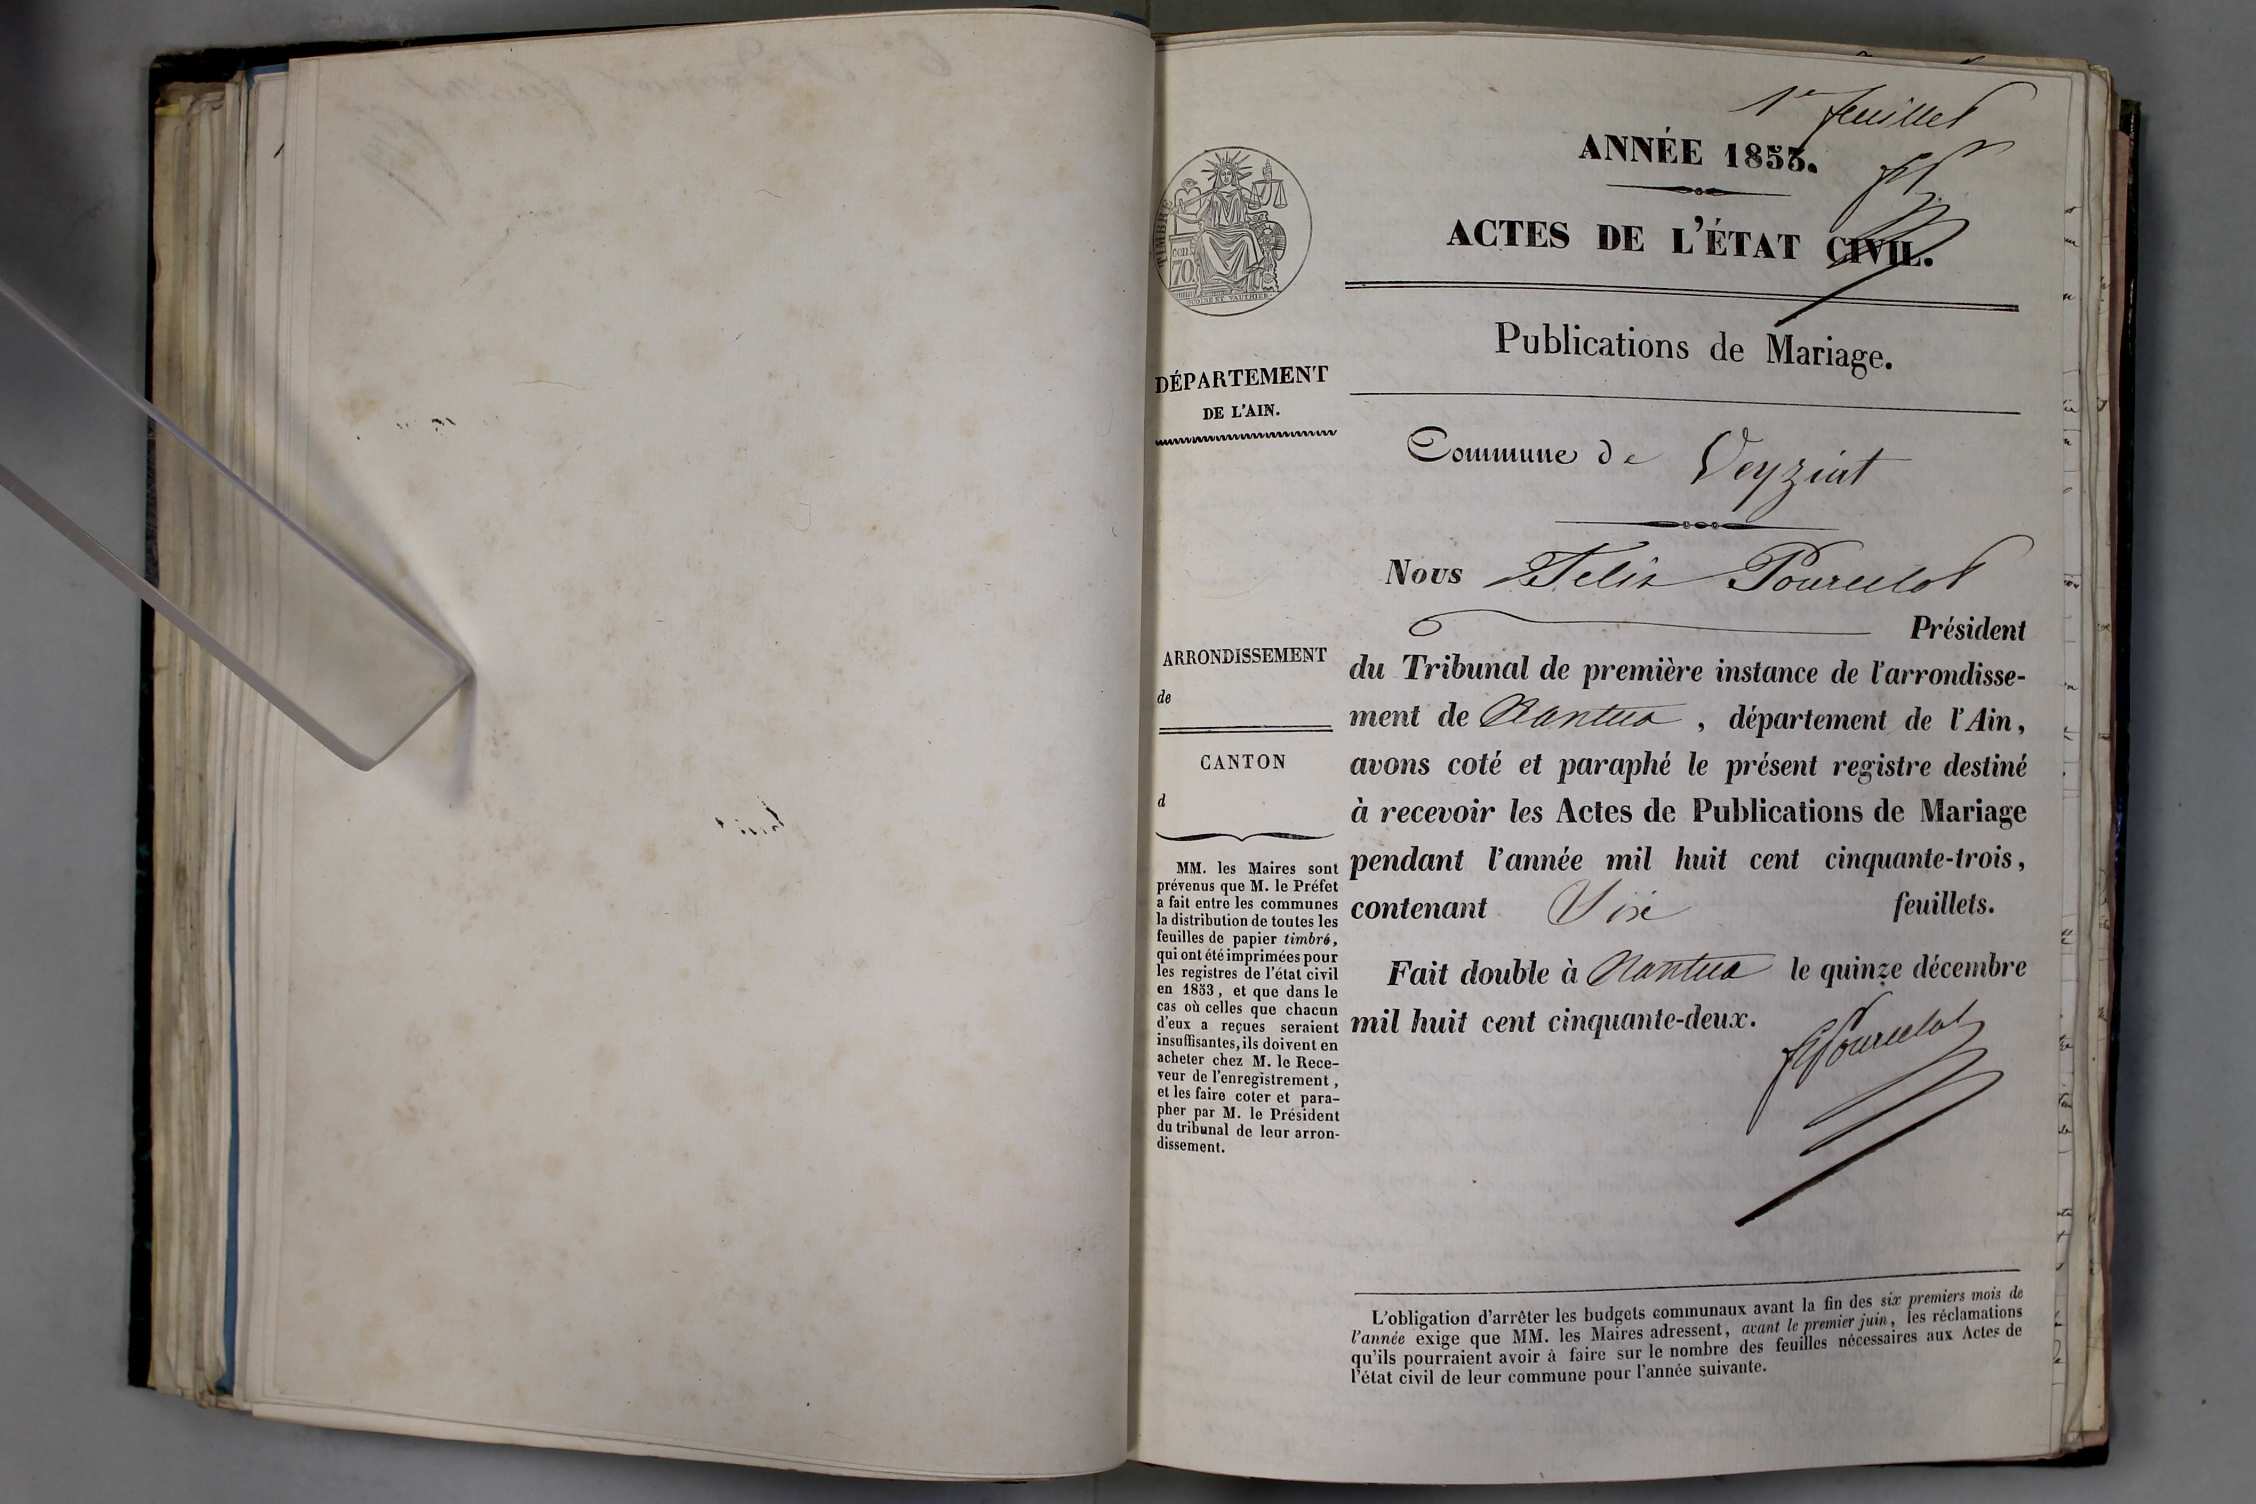 1er feuillet
ANNÉE 1853.
ACTES DE L'ÉTAT CIVIL.
Publications de Mariage.
Commune de Veyziat
Nous Félix Pourcelot
Président
du Tribunal de première instance de l'arrondisse-
ment de Nantua, département de l'Ain,
avons coté et paraphé le présent registre destiné
à recevoir les Actes de Publications de Mariage
pendant l'année mil huit cent cinquante-trois,
contenant Six feuillets.
Fait double à Nantua le quinze décembre
mil huit cent cinquante-deux.
FPourcelot
L'obligation d'arrêter les budgets communaux avant la fin des six premiers mois de
l'année exige que MM. les Maires adressent, avant le premier juin, les réclamations
qu'ils pourraient avoir à faire sur le nombre des feuilles nécessaires aux Actes de
l'état civil de leur commune pour l'année suivante.
TIMBRE
70
DÉPARTEMENT
DE L'AIN.
ARRONDISSEMENT
de
CANTON
d
MM. les Maires sont
prévenus que M. le Préfet
a fait entre les communes
la distribution de toutes les
feuilles de papier timbré,
qui ont été imprimées pour
les registres de l'état civil
en 1853, et que dans le
cas où celles que chacun
d'eux a reçues seraient
insuffisantes, ils doivent en
acheter chez M. le Rece-
veur de l'enregistrement,
et les faire coter et para-
pher par M. le Président
du tribunal de leur arron-
dissement.